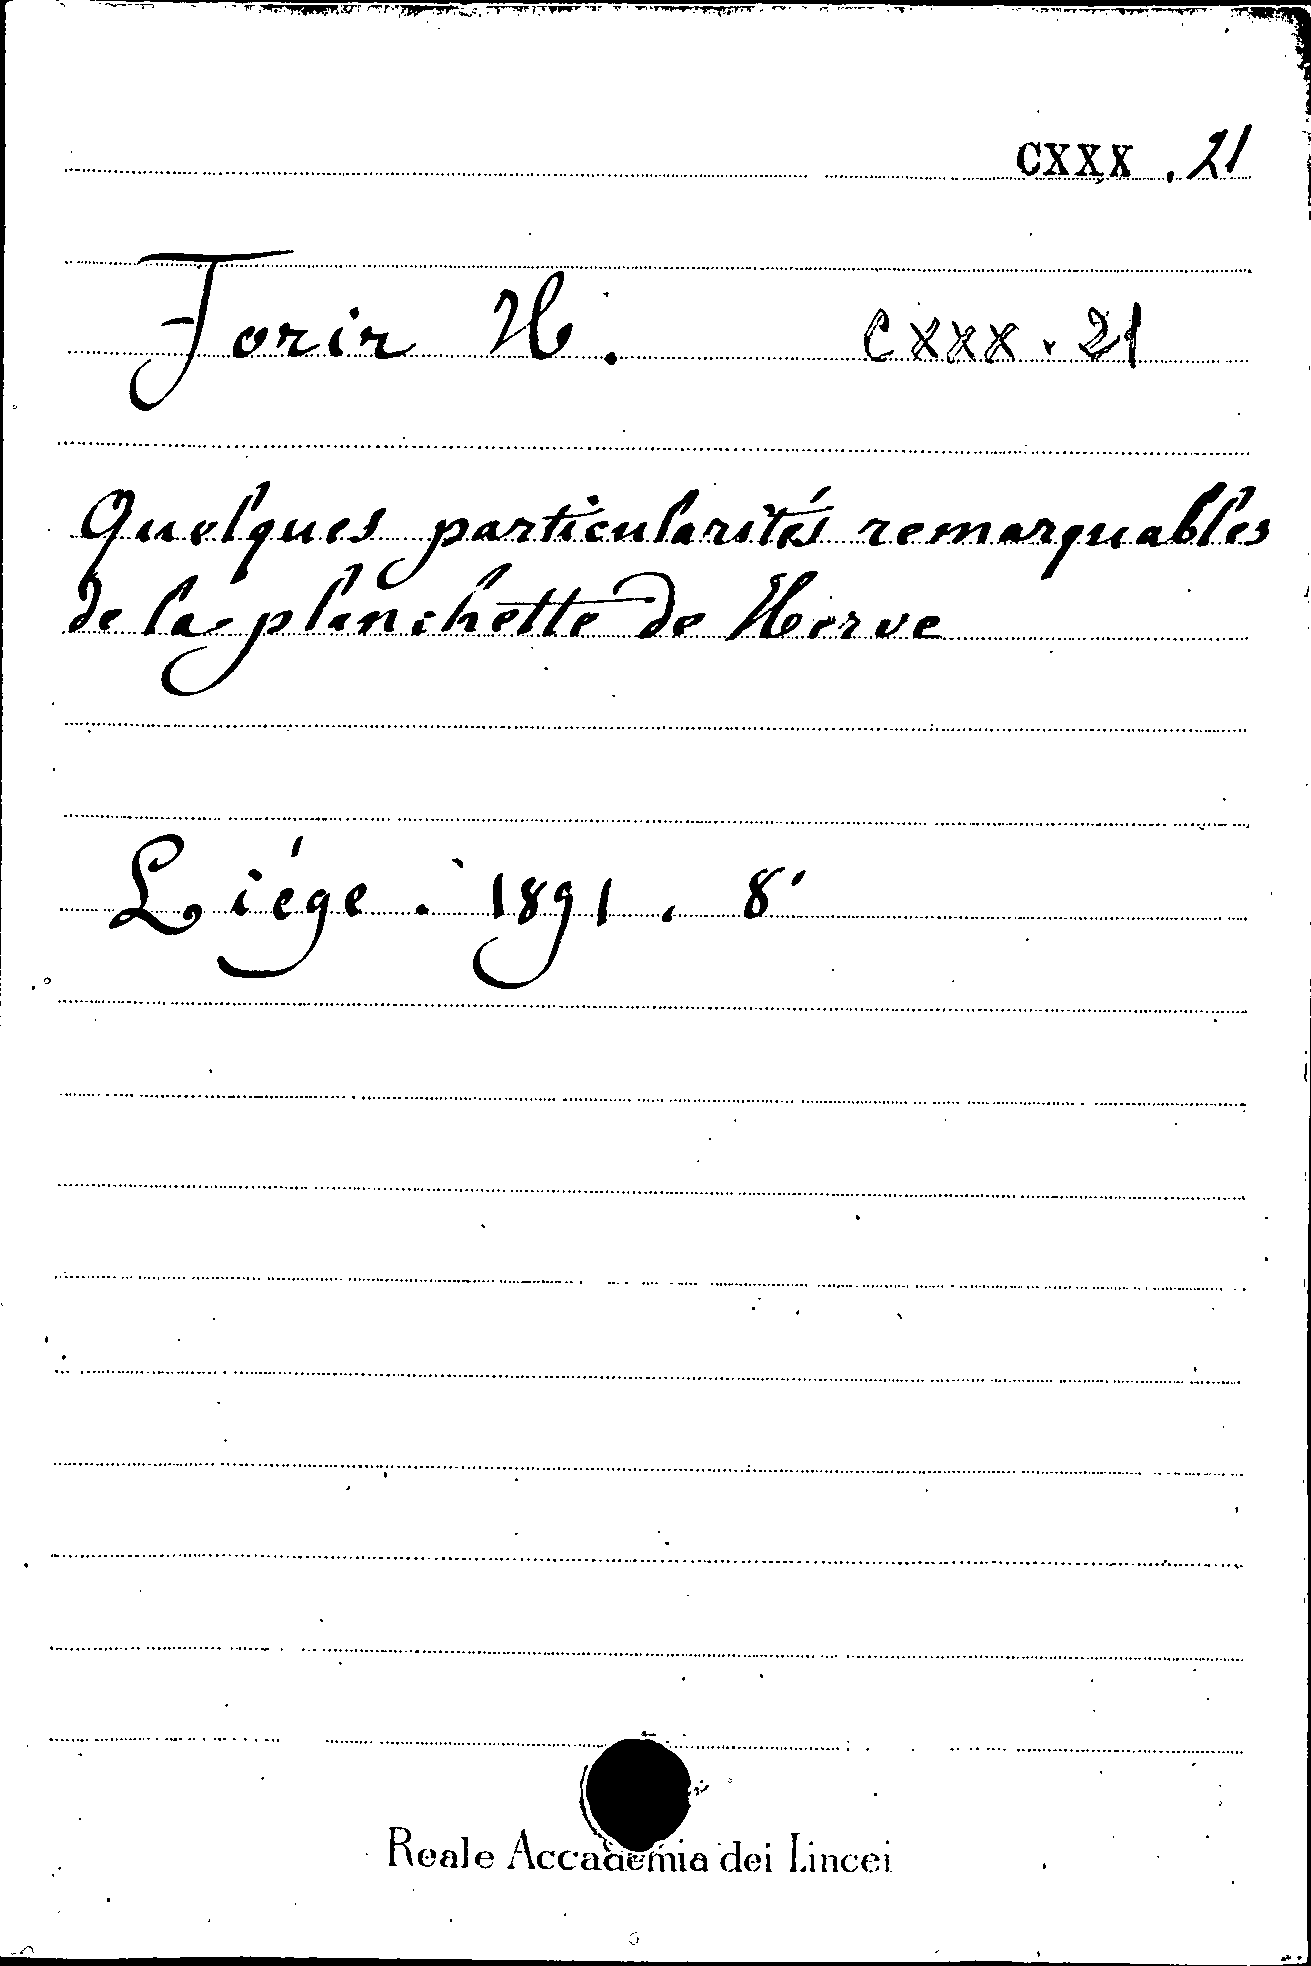 CXXX . 21
Forir H. CXXX . 21
Quelques particularités remarquables
de la planchette de Herve
Liége . 1891 . 8°
Reale Accademia dei Lincei